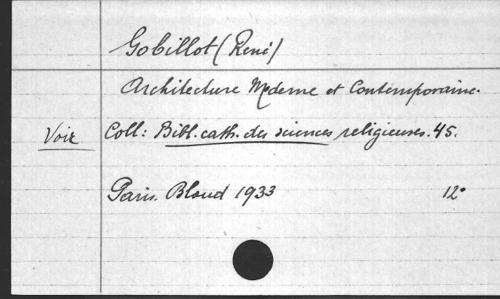 Gobillot (René)
Architecture Moderne et Contemporaine.
Voir Coll: Bibl. cath. des sciences religieuses. 45.
Paris. Bloud 1933 12°